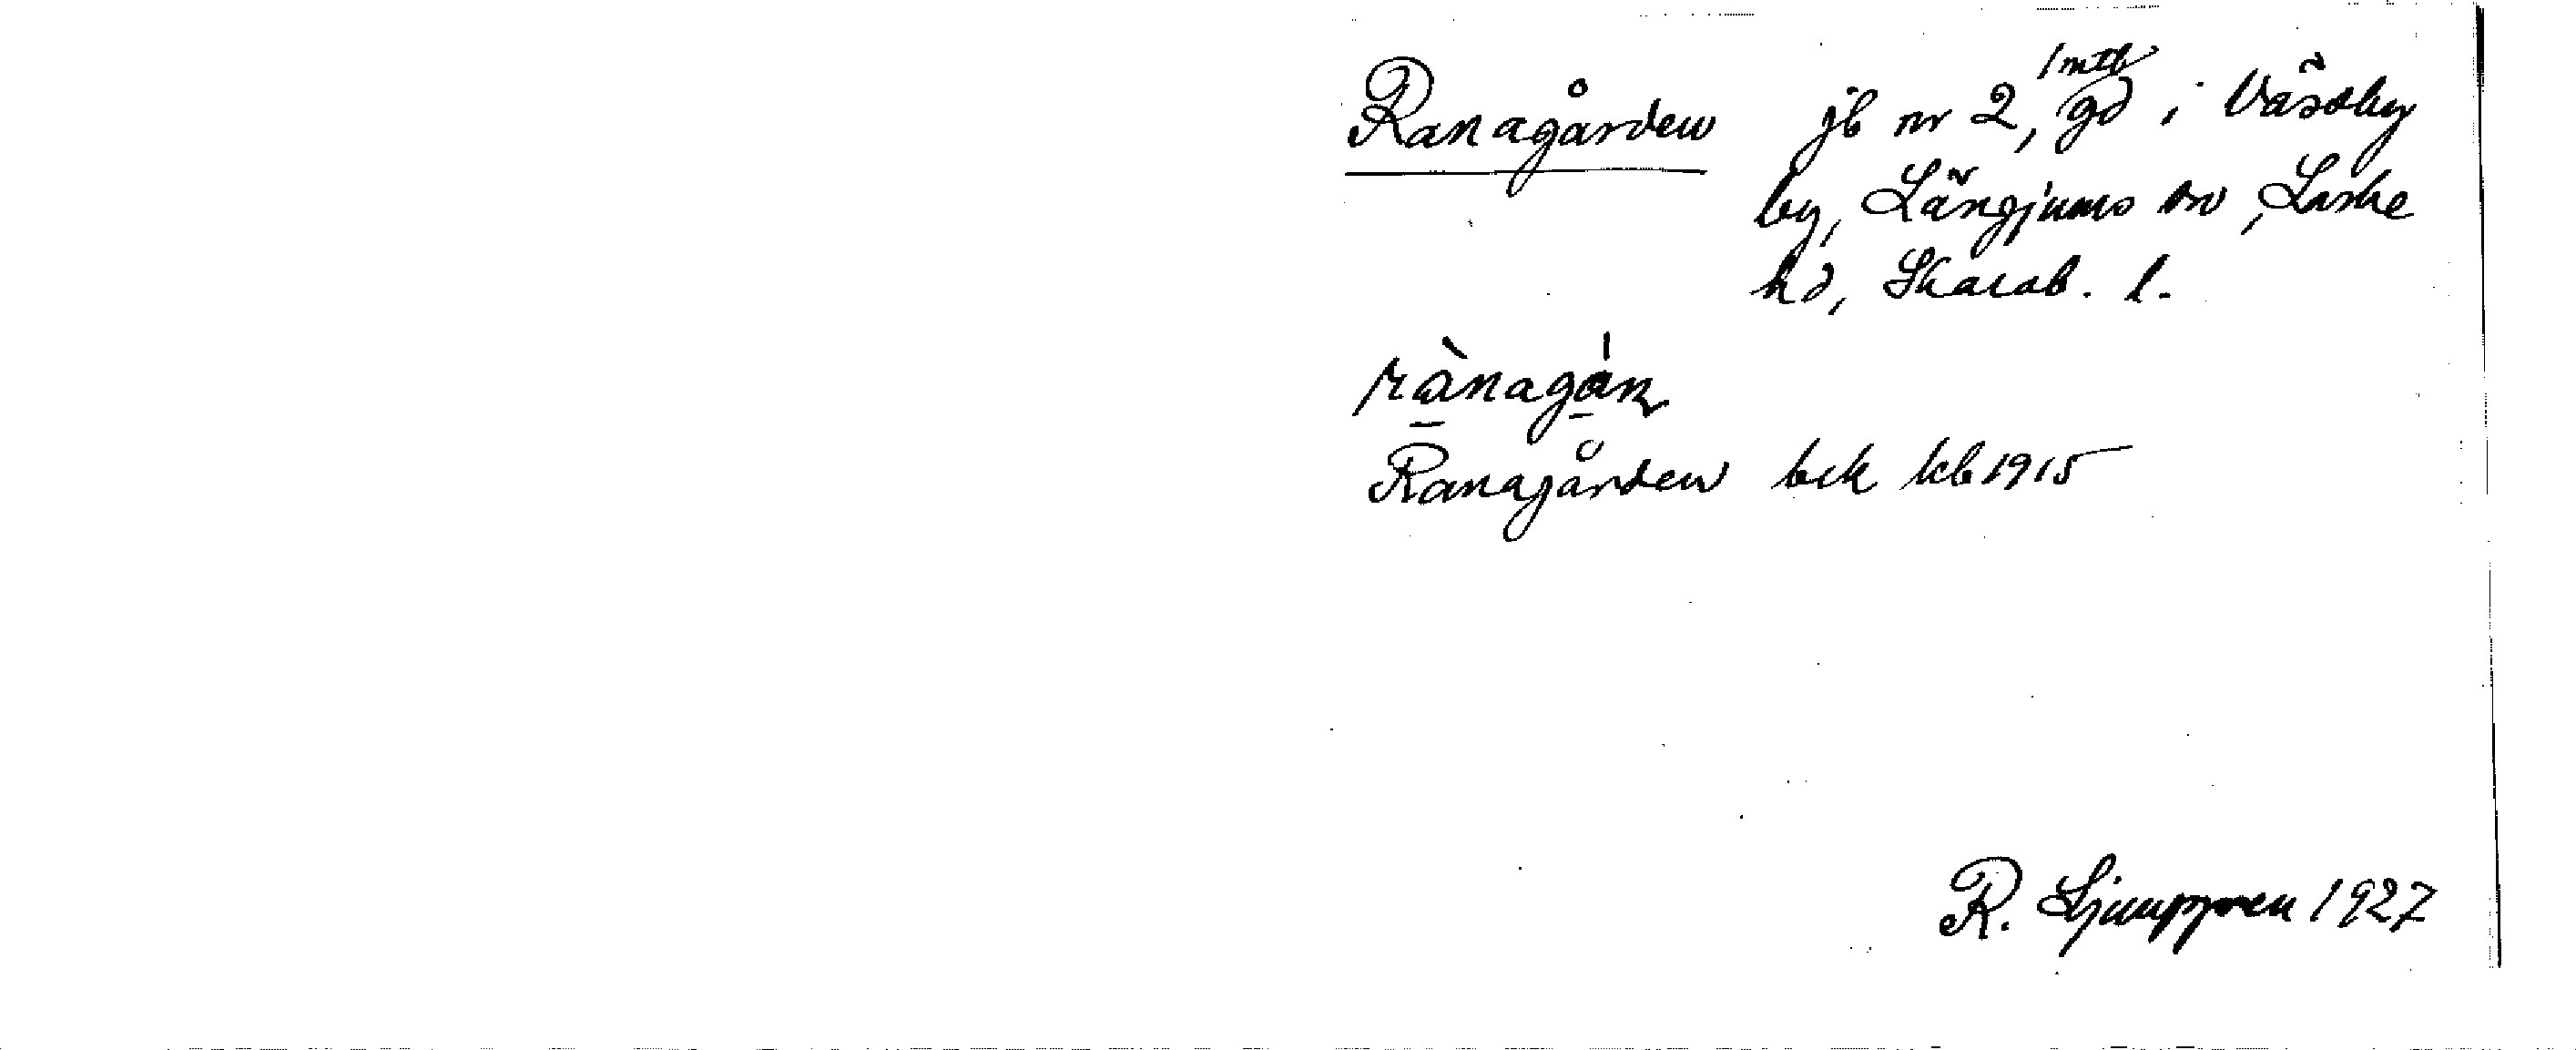 Ranagården jb nr 2, 1 mtl gd i Väsöby
by, Längjums sn, Laske
hd, Skarab. l.
rànagán
Ranagården bek kb 1915
R. Ljunggren 1927